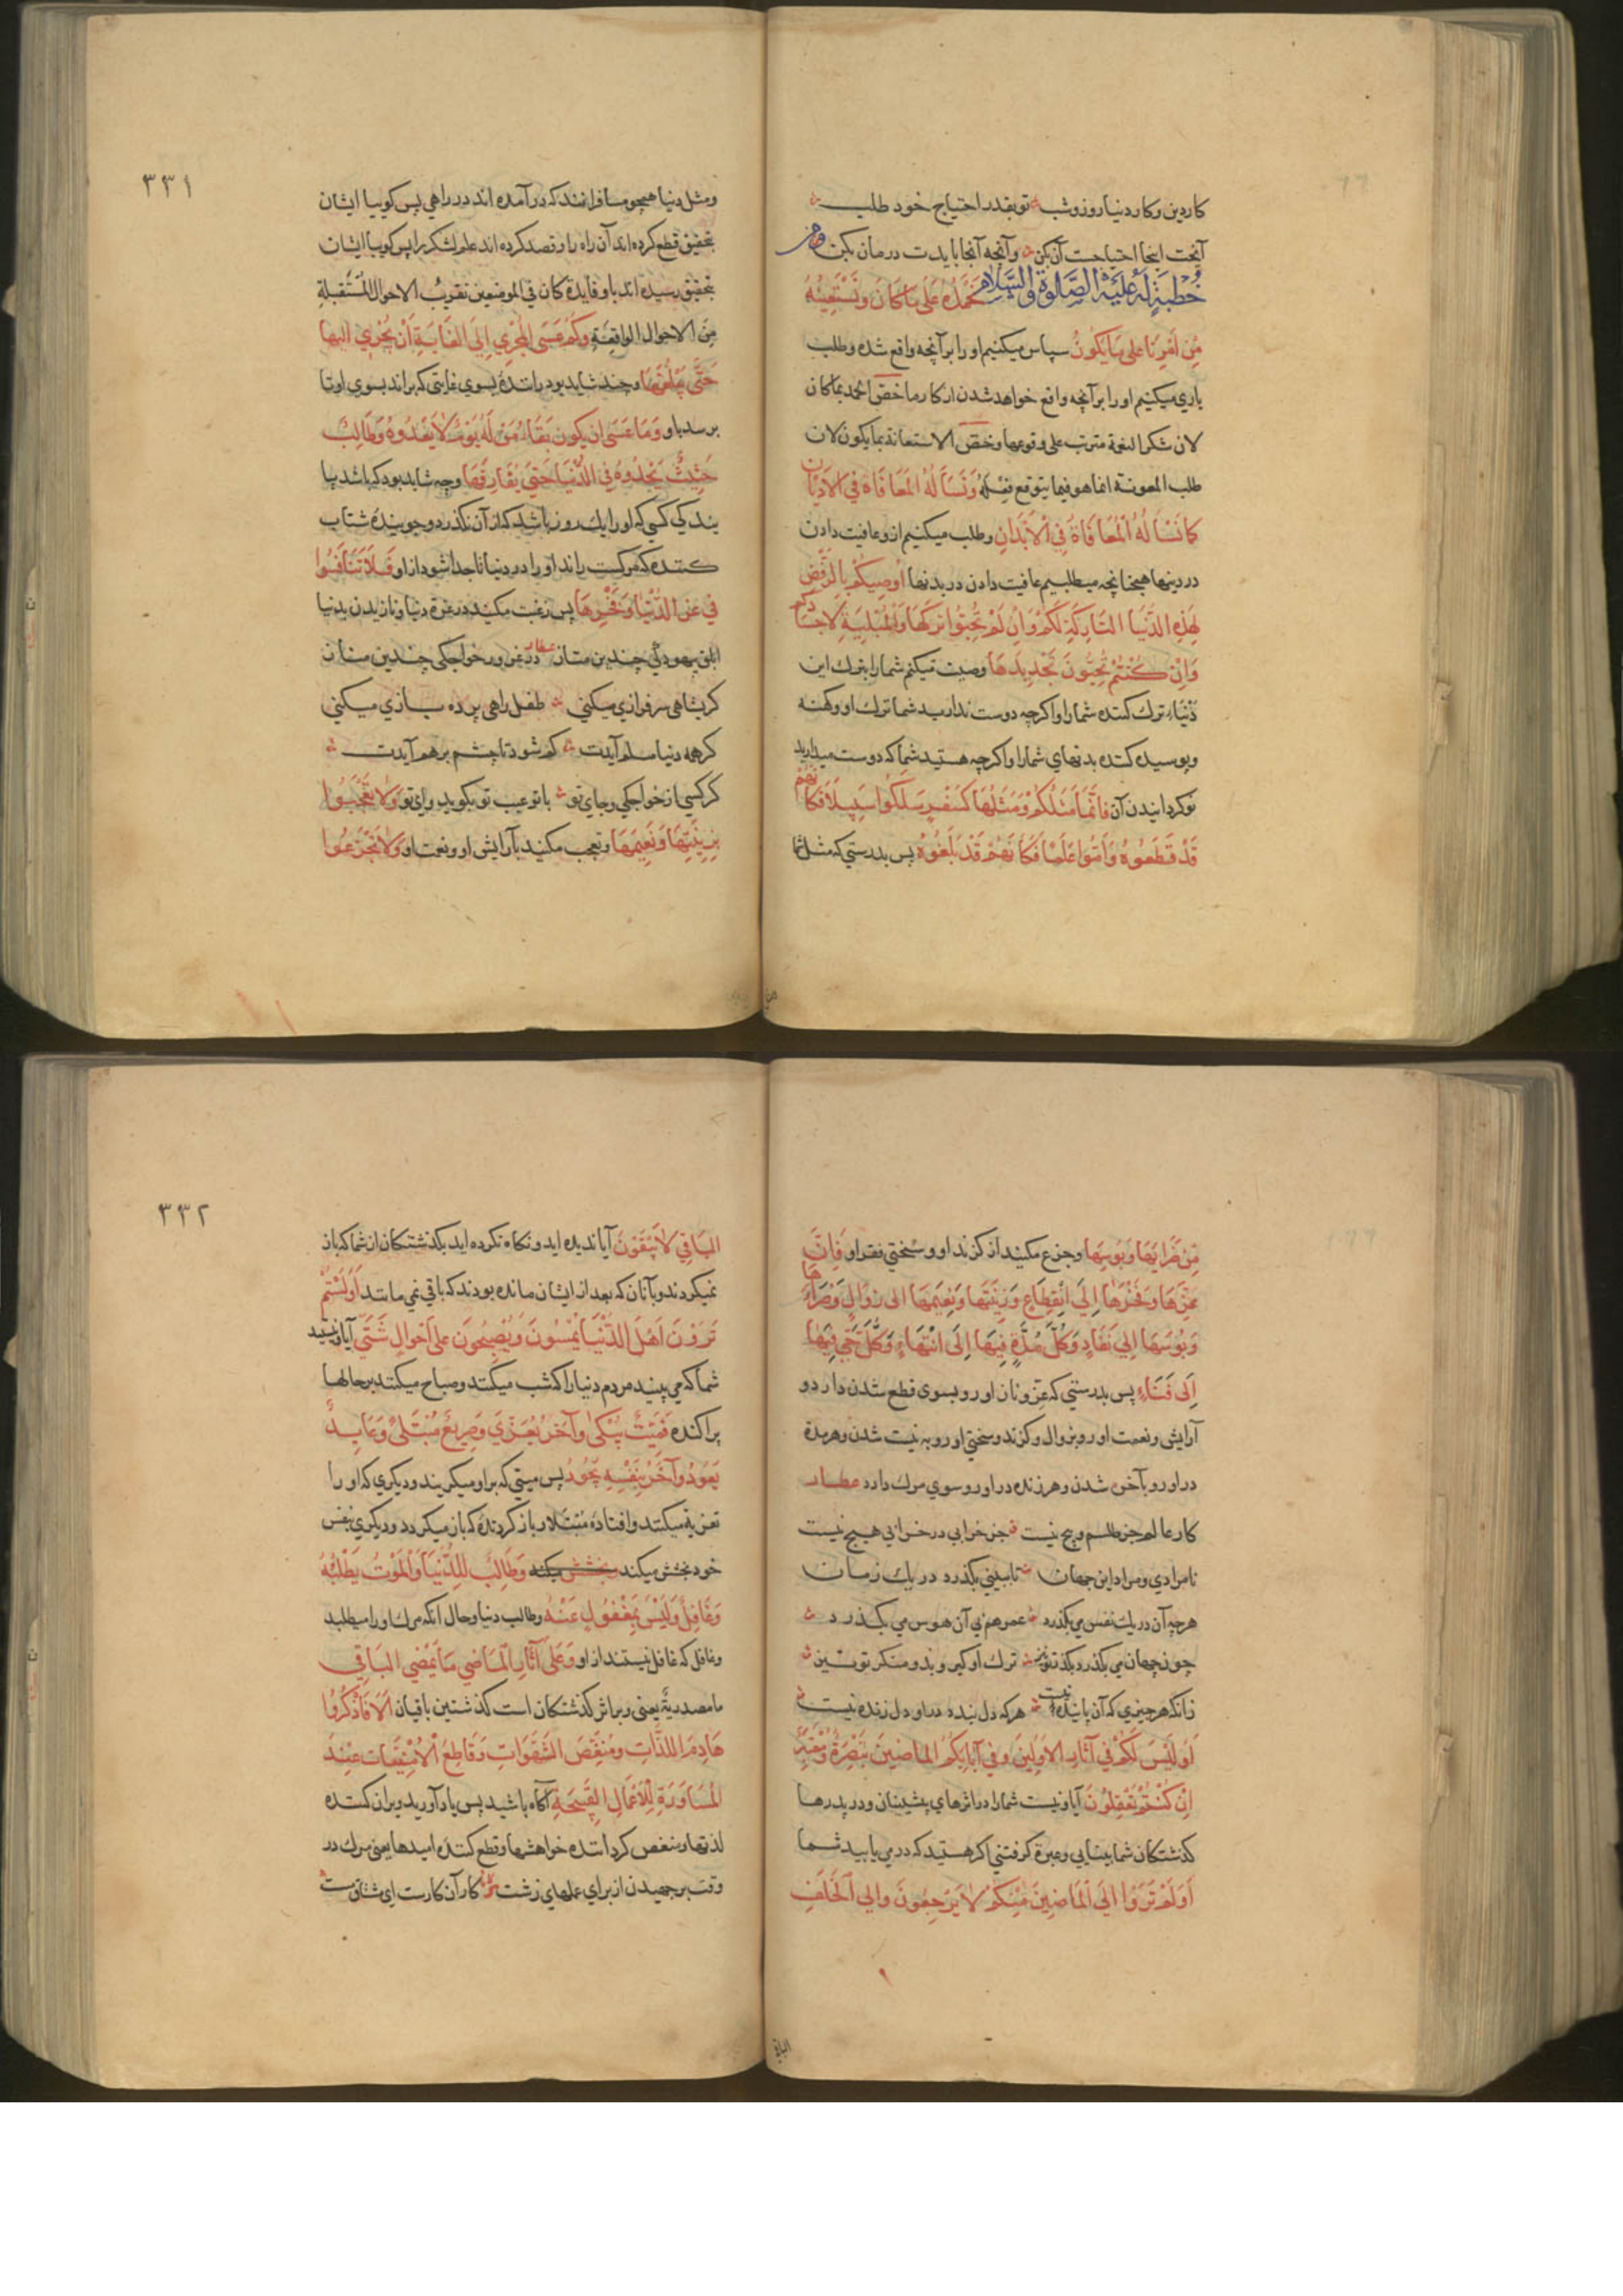 کار دین و کار دنیا روز و شب تو بقدر احتیاج خود طلب
آنچت اینجا احتیاجت آن بکن وآنچه آنجا بایدت درمان بکن
خُطبَةٍ لَهُ عَلَیْهِ الصَّلوةُ والسَّلام نَحْمَدُهُ عَلَی مَا کَانَ وَنَسْتَعِینُهُ
مِن اَمْرِنَا عَلی مَا یَکُونُ سپاس میکنیم او را بر آنچه واقع شده و طلب
یاری میکنیم او را بر آنچه واقع خواهد شدن از کار ما خصّ الحمد بما کان
لان شکر النعمة مترتب علی وقوعها وخصّ الاستعانة بما یکون لان
طلب المعونة انما هو فیما یتوقع فعله وَنَسْاَلُهُ الْمُعَافَاةَ فِی الْاَدْیَانِ
کَمَا نَسْاَلُهُ الْمُعَافَاةَ فِی الْاَبْدَانِ وطلب میکنیم ازو عافیت دادن
در دینها همچنانچه میطلبیم عافیت دادن در بدنها اُوصِیکُمْ بِالرَّفْضِ
لِهَذِهِ الدُّنْیَا التَّارِکَةِ لَکُمْ وَاِنْ لَمْ تُحِبُّوا تَرْکَهَا وَالْمُبْلِیَةِ لِاَجْسَادِکُم
وَاِنْ کُنْتُمْ تُحِبُّونَ تَجْدِیدَهَا وصیت میکنم شما را بترک این
دنیاء ترک کننده شما را واکرچه دوست ندارید شما ترک او وکهنه
وپوسیده کننده بدنهای شما را واکرچه هستید شما که دوست میدارید
نو کردانیدن آن فَاِنَّمَا مَثَلُکُمْ وَمَثَلُهَا کَسَفْرٍ سَلَکُوا سَبِیلاً فَکَاَنَّهُمْ
قَدْ قَطَعُوهُ وَاَمُّوا عَلَمًا فَکَاَنَّهُمْ قَدْ بَلَغُوْهُ پس بدرستی که مثل شما
٣٣١
ومثل دنیا همچو مسافرانند که در آمده اند در راهی پس کوییا ایشان
بتحقیق قطع کرده اند آن راه را وقصد کرده اند علم لشکر را پس کوییا ایشان
بتحقیق رسیده اند باو وفایدة کان فی الموضعین تقریب الاحوال المُستَقبلةِ
مِنَ الاحوال الواقِعَةِ وَکَمْ عَسَی الْمُجْرِی اِلَی الْغَایَةِ اَنْ یُجْرِی اِلیها
حَتَّی یَبْلُغَهَا وچند شاید بود رانندۀ بسوی غایتی که براند بسوی او تا
برسد باو وَمَا عَسَی ان یکون بَقَاءُ مَنْ لَهُ یَوْمٌ لَا یَعْدُوهُ وَطَالِبٌ
حَثِیثٌ یَحْدُوهُ فِی الدُّنْیَا حَتَّی یُفَارِقَهَا وچه شاید بود که باشد پا
یندکی کسی که او را یک روز باشد که از آن نکذرد وجویندۀ شتاب
کننده که مرکست راند او را در دنیا تا جدا شود از او فَلَا تَنَافَسُوا
فِی عِزِّ الدُّنْیَا وَفَخْرِهَا پس رغبت مکنید در عزة دنیا ونازیدن بدنیا
کر بشاهی سرفرازی میکنی طفل راهی پرده بازی میکنی
کر همه دنیا مسلم آیدت کم شود تا چشم بر هم آیدت
کر کسی از خواجکی وجای تو با تو عیب تو بکوید وای تو وَلَا تَعْجَبُوا
بِزِینَتِهَا وَنَعِیمِهَا وتعجب مکنید بآرایش او ونعمت او وَلَا تَجْزَعُوا
مِنْ ضَرَّائِهَا وَبُؤسِهَا وجزع مکنید از کزند او وسختی وفقر او فَاِنَّ
عِزَّهَا وَفَخْرَهَا اِلَی انْقِطَاعٍ وَزِینَتَهَا وَنَعِیمَهَا الی زَوَالٍ وَضَرَّاءَهَا
وَبُوسَهَا اِلَی نَفَادٍ وَکُلَّ مُدَّةٍ فِیهَا اِلَی انْتِهَاءٍ وَکُلَّ حَیٍّ فِیهَا
اِلَی فَنَاءٍ پس بدرستی که عزّ وناز او رو بسوی قطع شدن دارد و
آرایش ونعمت او رو بزوال وکزند وسختی او رو به نیست شدن وهر مدة
در او رو بآخر شدن وهر زنده در او رو سوی مرک دارد عطار
کار عالم جز طلسم وپیچ نیست جز خرابی در خرابی هیچ نیست
نامرادی ومراد این جهان تا ببینی بکذرد در یک زمان
هرچه آن در یک نفس می بکذرد عمر هم بی آن هوس می بکذرد
چون جهان می بکذرد بکذر تو نیز ترک او کیر وبدو منکر تو نیز
زانکه هر چیزی که آن پاینده نیست هرکه دل بندد در او دل زنده نیست
اَوَلَیْسَ لَکُمْ فِی آثَارِ الاَوَّلِینَ وفی آبَائِکُمُ الماضِینَ تَبْصِرَةٌ ومُعْتَبَرٌ
اِنْ کُنْتُمْ تَعْقِلُونَ آیا ونیست شما را در اثرهای پیشینیان ودر پدرها
کذشتکان شما بینایی وعبرة کرفتنی اکر هستید که درمی یابید شما
اَوَلَمْ تَرَوْا اِلَی الْمَاضِینَ مِنْکُمْ لَا یَرْجِعُونَ والی الْخَلَفِ
الباقی
٣٣٢
الْبَاقِی لَا یَبْقَوْنَ آیا ندیده اید ونکاه نکرده اید بکذشتکان از شما که باز
نمیکردند وبآنان که بعد از ایشان مانده بودند که باقی نمی مانند اَوَلَسْتُمْ
تَرَوْنَ اَهْلَ الدُّنْیَا یُمْسُونَ وَیُصْبِحُونَ عَلَی اَحْوَالٍ شَتَّی آیا ونیستید
شما که می بینید مردم دنیا را که شب میکنند وصباح میکنند بر حالها
پراکنده فَمَیِّتٌ یُبْکَی وَآخَرُ یُعَزَّی وَصَرِیعٌ مُبْتَلًی وَعَایِدٌ
یَعُودُ وَآخَرُ بِنَفْسِهِ یَجُودُ پس میتی که بر او میکریند ودیکری که او را
تعزیه میکنند وافتادۀ مبتلا وباز کردندۀ که باز میکردد ودیکری بنفس
خود بخشش میکند بخشش میکند وَطَالِبٌ لِلدُّنْیَا وَالْمَوْتُ یَطْلُبُهُ
وَغَافِلٌ وَلَیْسَ بِمَغْفُولٍ عَنْهُ وطالب دنیا وحال آنکه مرک او را میطلبد
وغافل که غافل نیستند از او وَعَلَی آثَارِ الْمَاضِی مَا یَمْضِی الباقی
ما مصدریة یعنی وبر اثر کذشتکان است کذشتن باقیان اَلَا فَاذْکُرُوا
هَادِمَ اللَّذَّاتِ وَمُنَغِّصَ الشَّهَوَاتِ وَقَاطِعَ الْاُمْنِیَّات عِنْدَ
الْمُسَاوَرَةِ لِلْاَعْمَالِ الْقَبِیحَةِ آکاه باشید پس یاد آورید ویران کننده
لذتها ومنغص کردانندۀ خواهشها وقطع کنندۀ امیدها یعنی مرک در
وقت برجهیدن از برای عملهای زشت کار آن کارست ای مشتاق مست